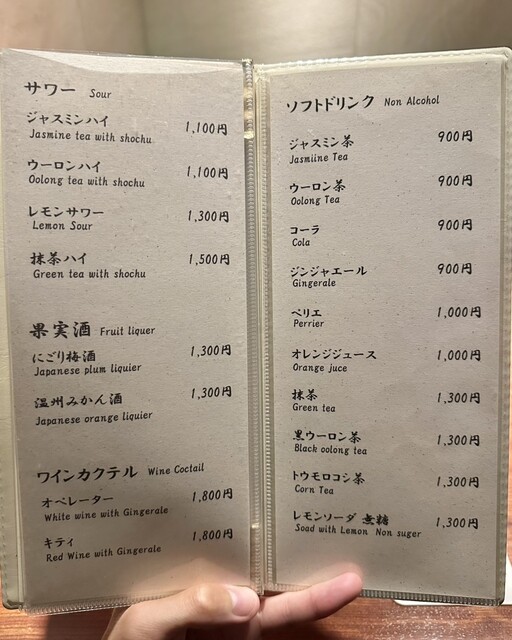 サワー Sour
ジャスミンハイ 1,100円
Jasmine tea with shochu
ウーロンハイ 1,100円
Oolong tea with shochu
レモンサワー 1,300円
Lemon Sour
抹茶ハイ 1,500円
Green tea with shochu
果実酒 Fruit liquer
にごり梅酒 1,300円
Japanese plum liquier
温州みかん酒 1,300円
Japanese orange liquier
ワインカクテル Wine Coctail
オペレーター 1,800円
White wine with Gingerale
キティ 1,800円
Red Wine with Gingerale
ソフトドリンク Non Alcohol
ジャスミン茶 900円
Jasmiine Tea
ウーロン茶 900円
Oolong Tea
コーラ 900円
Cola
ジンジャエール 900円
Gingerale
ペリエ 1,000円
Perrier
オレンジジュース 1,000円
Orange juce
抹茶 1,300円
Green tea
黒ウーロン茶 1,300円
Black oolong tea
トウモロコシ茶 1,300円
Corn Tea
レモンソーダ 無糖 1,300円
Soad with Lemon Non suger